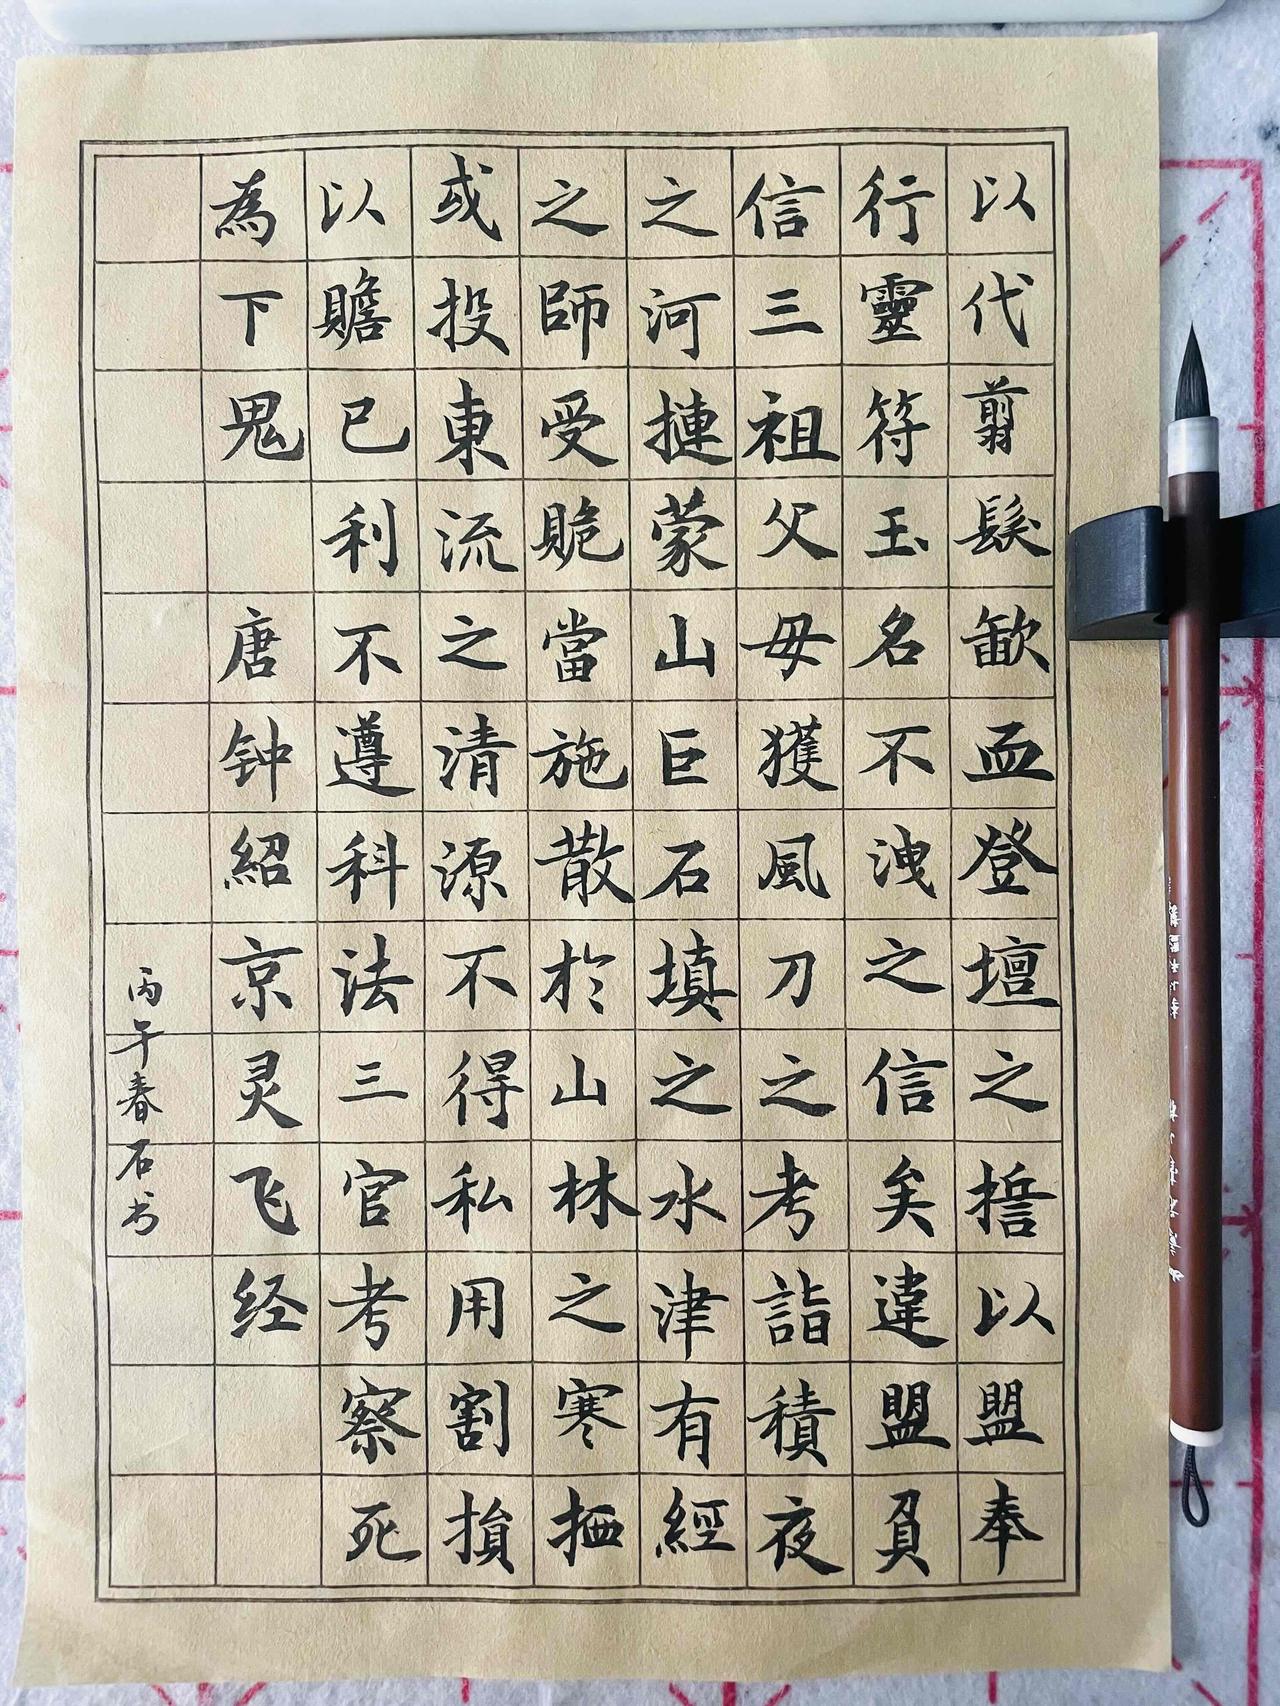 以代翦髮歃血登壇之誓以盟奉
行靈符玉名不洩之信矣違盟負
信三祖父母獲風刀之考詣積夜
之河摙蒙山巨石填之水津有經
之師受貤當施散於山林之寒栖
或投東流之清源不得私用割損
以贍己利不遵科法三官考察死
為下鬼 唐钟紹京灵飞经
丙午春石书